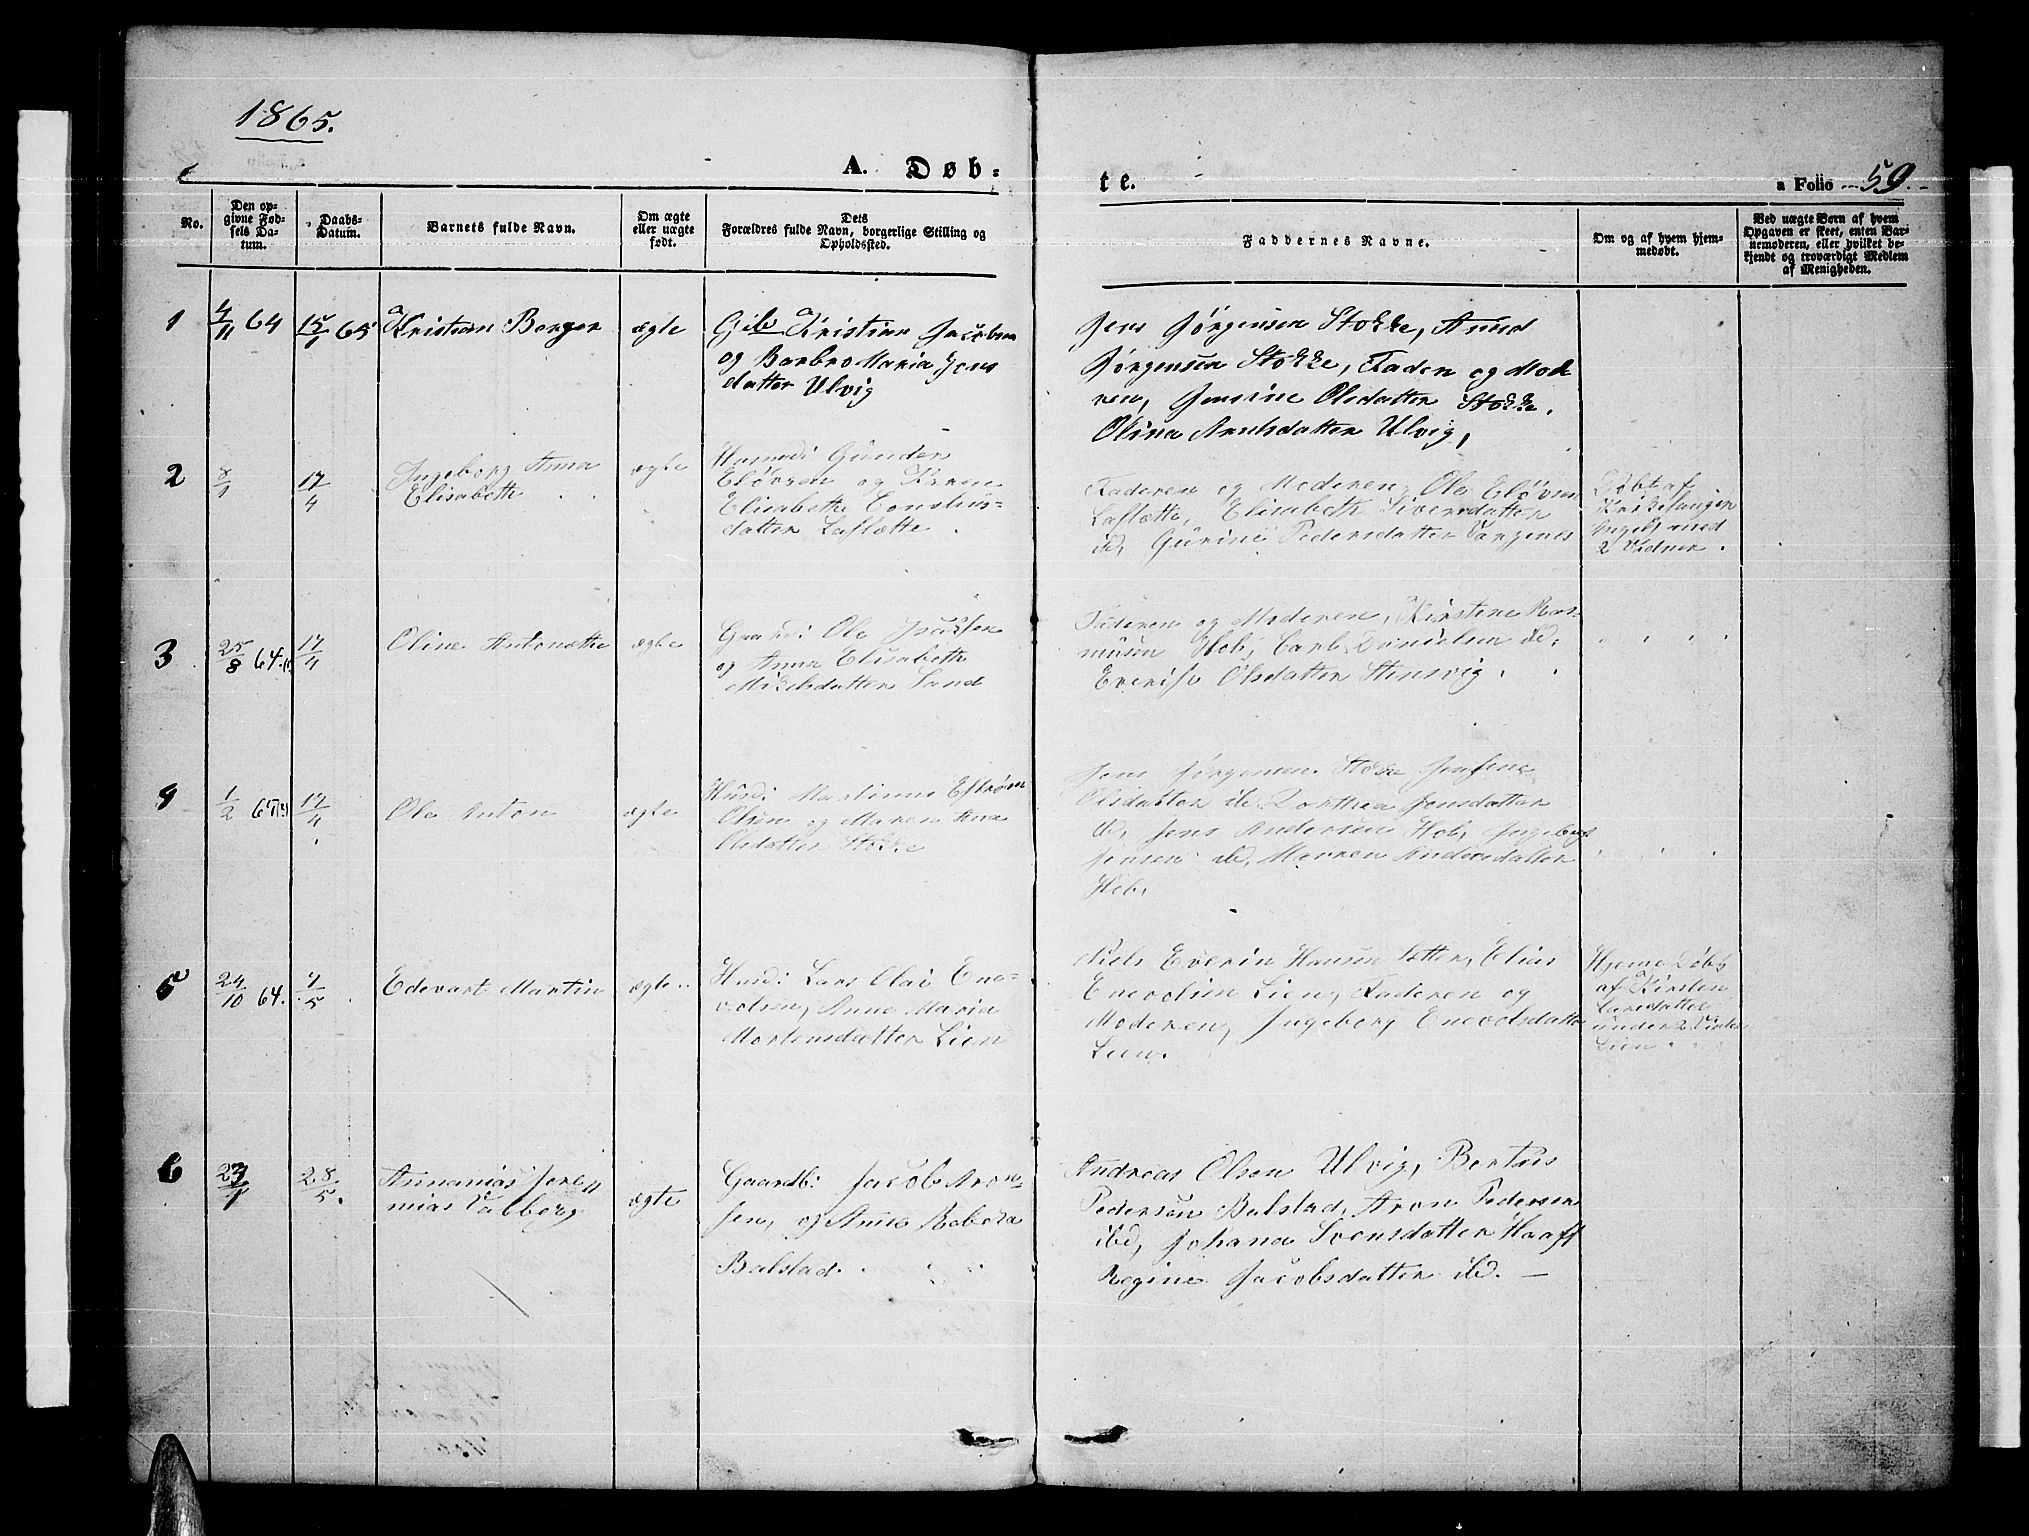 1865.
A. Døb-
te.
a Folio 59.
No.
Den op-
givne Fød-
sels Da-
tum.
Daabs-
Datum.
Barnets fulde Navn.
Om ægte
eller uægte
født.
Dets
Forældres fulde Navn, borgerlige Stilling og
Opholdssted.
Faddernes Navne.
Om og af hvem hjem-
medøbt.
Ved uægte Børn af hvem
Opgaven er skeet, enten Bar-
nemoderen, eller hvilket be-
kjendt og troværdigt Medlem
af Menigheden.
1
4/11 64
15/1 65
Kristian Berger
ægte
Kristian Jacobsen
og Barbro Maria Jens
datter Ulvig
Jens Jørgensen Stokke, Arnd
Jørgensen Stokke, Faderen og Mod-
ren, Jensine Olsdatter Stokke.
Olina Arntsdatter Ulvig,
2
8/1
17/4
Ingeborg Anna
Elisabeth
ægte
Husmd: Gunder
og Karen
Elisabeth
datter
Faderen og Moderen, Ole
Elisabeth Siversdatter
ib, Gurine Pedersdatter
Døbt af
Kirkesanger
med
2 Vidner.
3
25/8 64
17/4
Oline Antonette
ægte
Gaardb: Ole
og Anna Elisabeth
Mikelsdatter Sand
Faderen og Moderen, Kirstine Ras-
musen Hob, Carl Danielsen ib,
Olsdatter Stensvig.
4
1/2
17/4
Ole Anton
ægte
Husd: Martinus
Olsen og Maren Ana
Olsdatter Stokke
Jens Jørgensen Stokke Jensine
Olsdatter ib Dorthea Jensdatter
ib, Jens Andersen Hob, Ingeborg
Jensen ib, Maren Andersdatter
Hob.
5
24/10 64.
7/5
Edevart Martin
ægte
Husd: Lars Olai Ene-
volsen, Anne Maria
Mortensdatter Lien
Niels Everin Hansen Sætter, Elias
Enevolsen Lien, Faderen og
Moderen, Ingeborg Enevolsdatter
Lien.
Hjeme Døbt
af Kirsten
Larsdatter
under 2 Vidner
Lien.
6
23/1
28/5.
Annanias Jere=
mias Valborg
ægte
Gaardb: Jacob Aron=
sen, og Anne Rebeka
Balstad.
Andreas Olsen Ulvig, Bertus
Pedersen Balstad, Aron Pedersen
ibd, Johana Svensdatter Haaff
Regine Jacobsdatter ibd. —